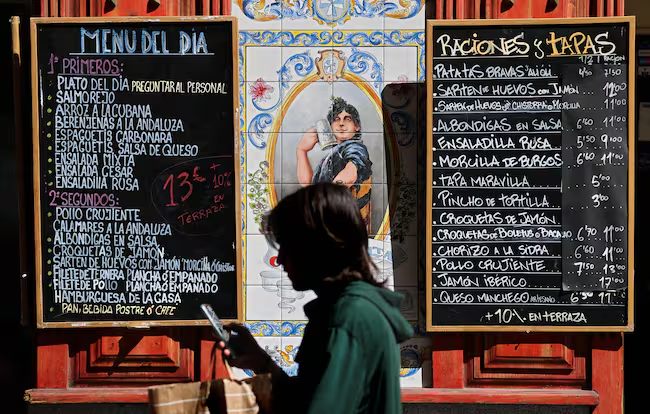 MENÚ DEL DÍA
1º PRIMEROS:
PLATO DEL DÍA PREGUNTAR AL PERSONAL
SALMOREJO
ARROZ A LA CUBANA
BERENJENAS A LA ANDALUZA
ESPAGUETIS CARBONARA
ESPAGUETIS SALSA DE QUESO
ENSALADA MIXTA
ENSALADA CESAR
ENSALADILLA RUSA
13€ + 10% EN TERRAZA
2º SEGUNDOS:
POLLO CRUJIENTE
CALAMARES A LA ANDALUZA
ALBONDIGAS EN SALSA
CROQUETAS DE JAMÓN
SARTEN DE HUEVOS CON JAMÓN MORCILLA
FILETE DE TERNERA PLANCHA O EMPANADO
FILETE DE POLLO PLANCHA O EMPANADO
HAMBURGUESA DE LA CASA
PAN, BEBIDA POSTRE O CAFE
RACIONES y TAPAS
1/2 RACION
PATATAS BRAVAS ALIOLI 4'50 7'50
SARTEN DE HUEVOS CON JAMÓN 12'00
SARTEN DE HUEVOS CHISTORRA O MORCILLA 11'00
ALBONDIGAS EN SALSA 6'40 11'00
ENSALADILLA RUSA 5'50 9'00
MORCILLA DE BURGOS 6'40 11'00
TAPA MARAVILLA 5'00
PINCHO DE TORTILLA 3'00
CROQUETAS DE JAMÓN
CROQUETAS DE BOLETUS O BACALAO 6'70 11'00
CHORIZO A LA SIDRA 6'40 11'00
POLLO CRUJIENTE 7'50 13'00
JAMÓN IBÉRICO 17'00
QUESO MANCHEGO 11'00
+10% EN TERRAZA